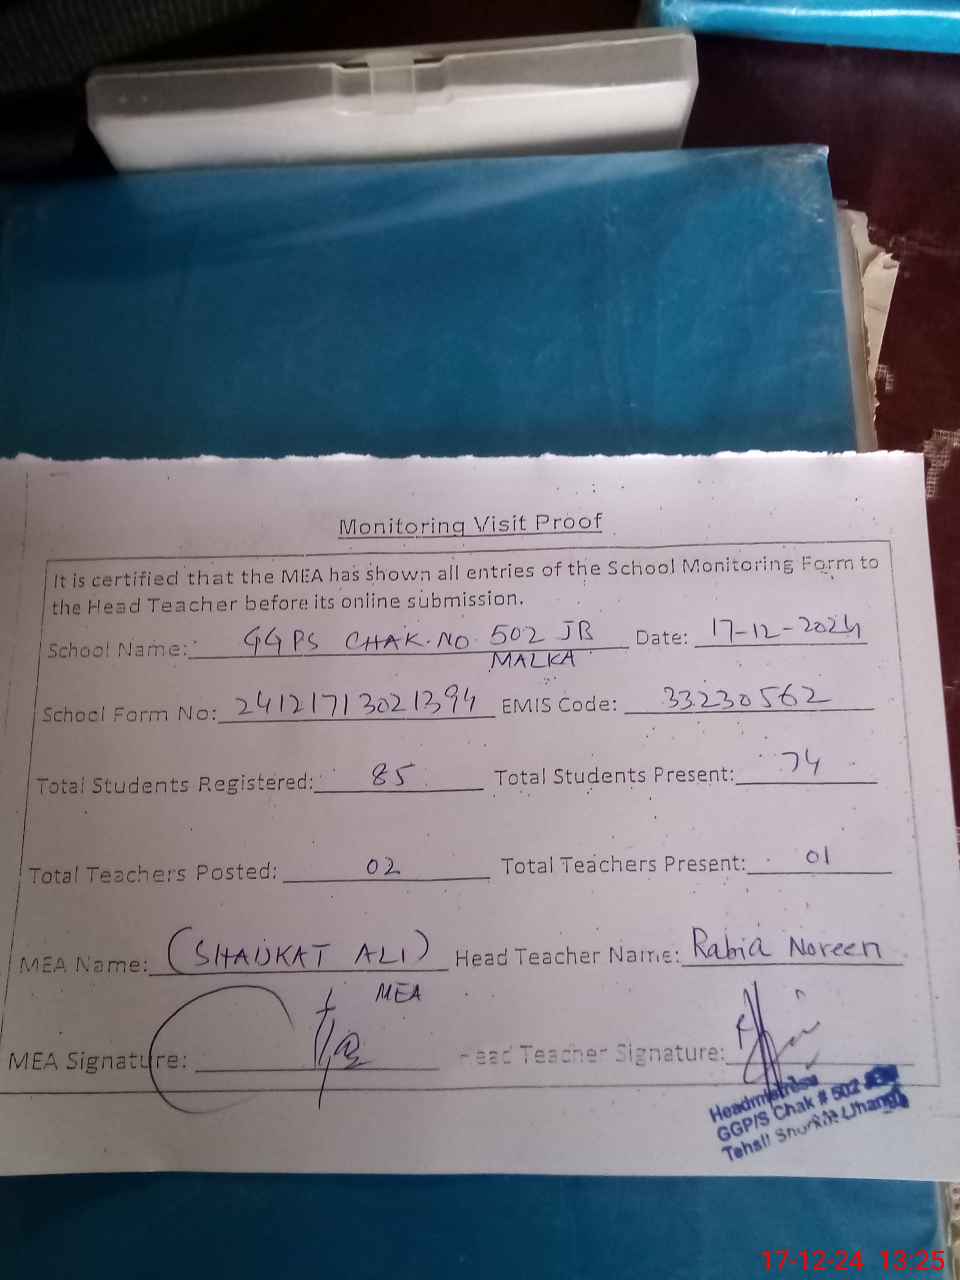 Monitoring Visit Proof
It is certified that the MEA has shown all entries of the School Monitoring Form to
the Head Teacher before its online submission.
School Name: GGPS CHAK.NO. 502 JB Date: 17-12-2024
MALKA
School Form No: 24121713021394 EMIS Code: 33230562
Total Students Registered: 85 Total Students Present: 74
Total Teachers Posted: 02 Total Teachers Present: 01
MEA Name: (SHAUKAT ALI) Head Teacher Name: Rabia Noreen
MEA
MEA Signature: Head Teacher Signature:
Headmistress
GGP/S Chak # 502
Tehsil
17-12-24 13:25